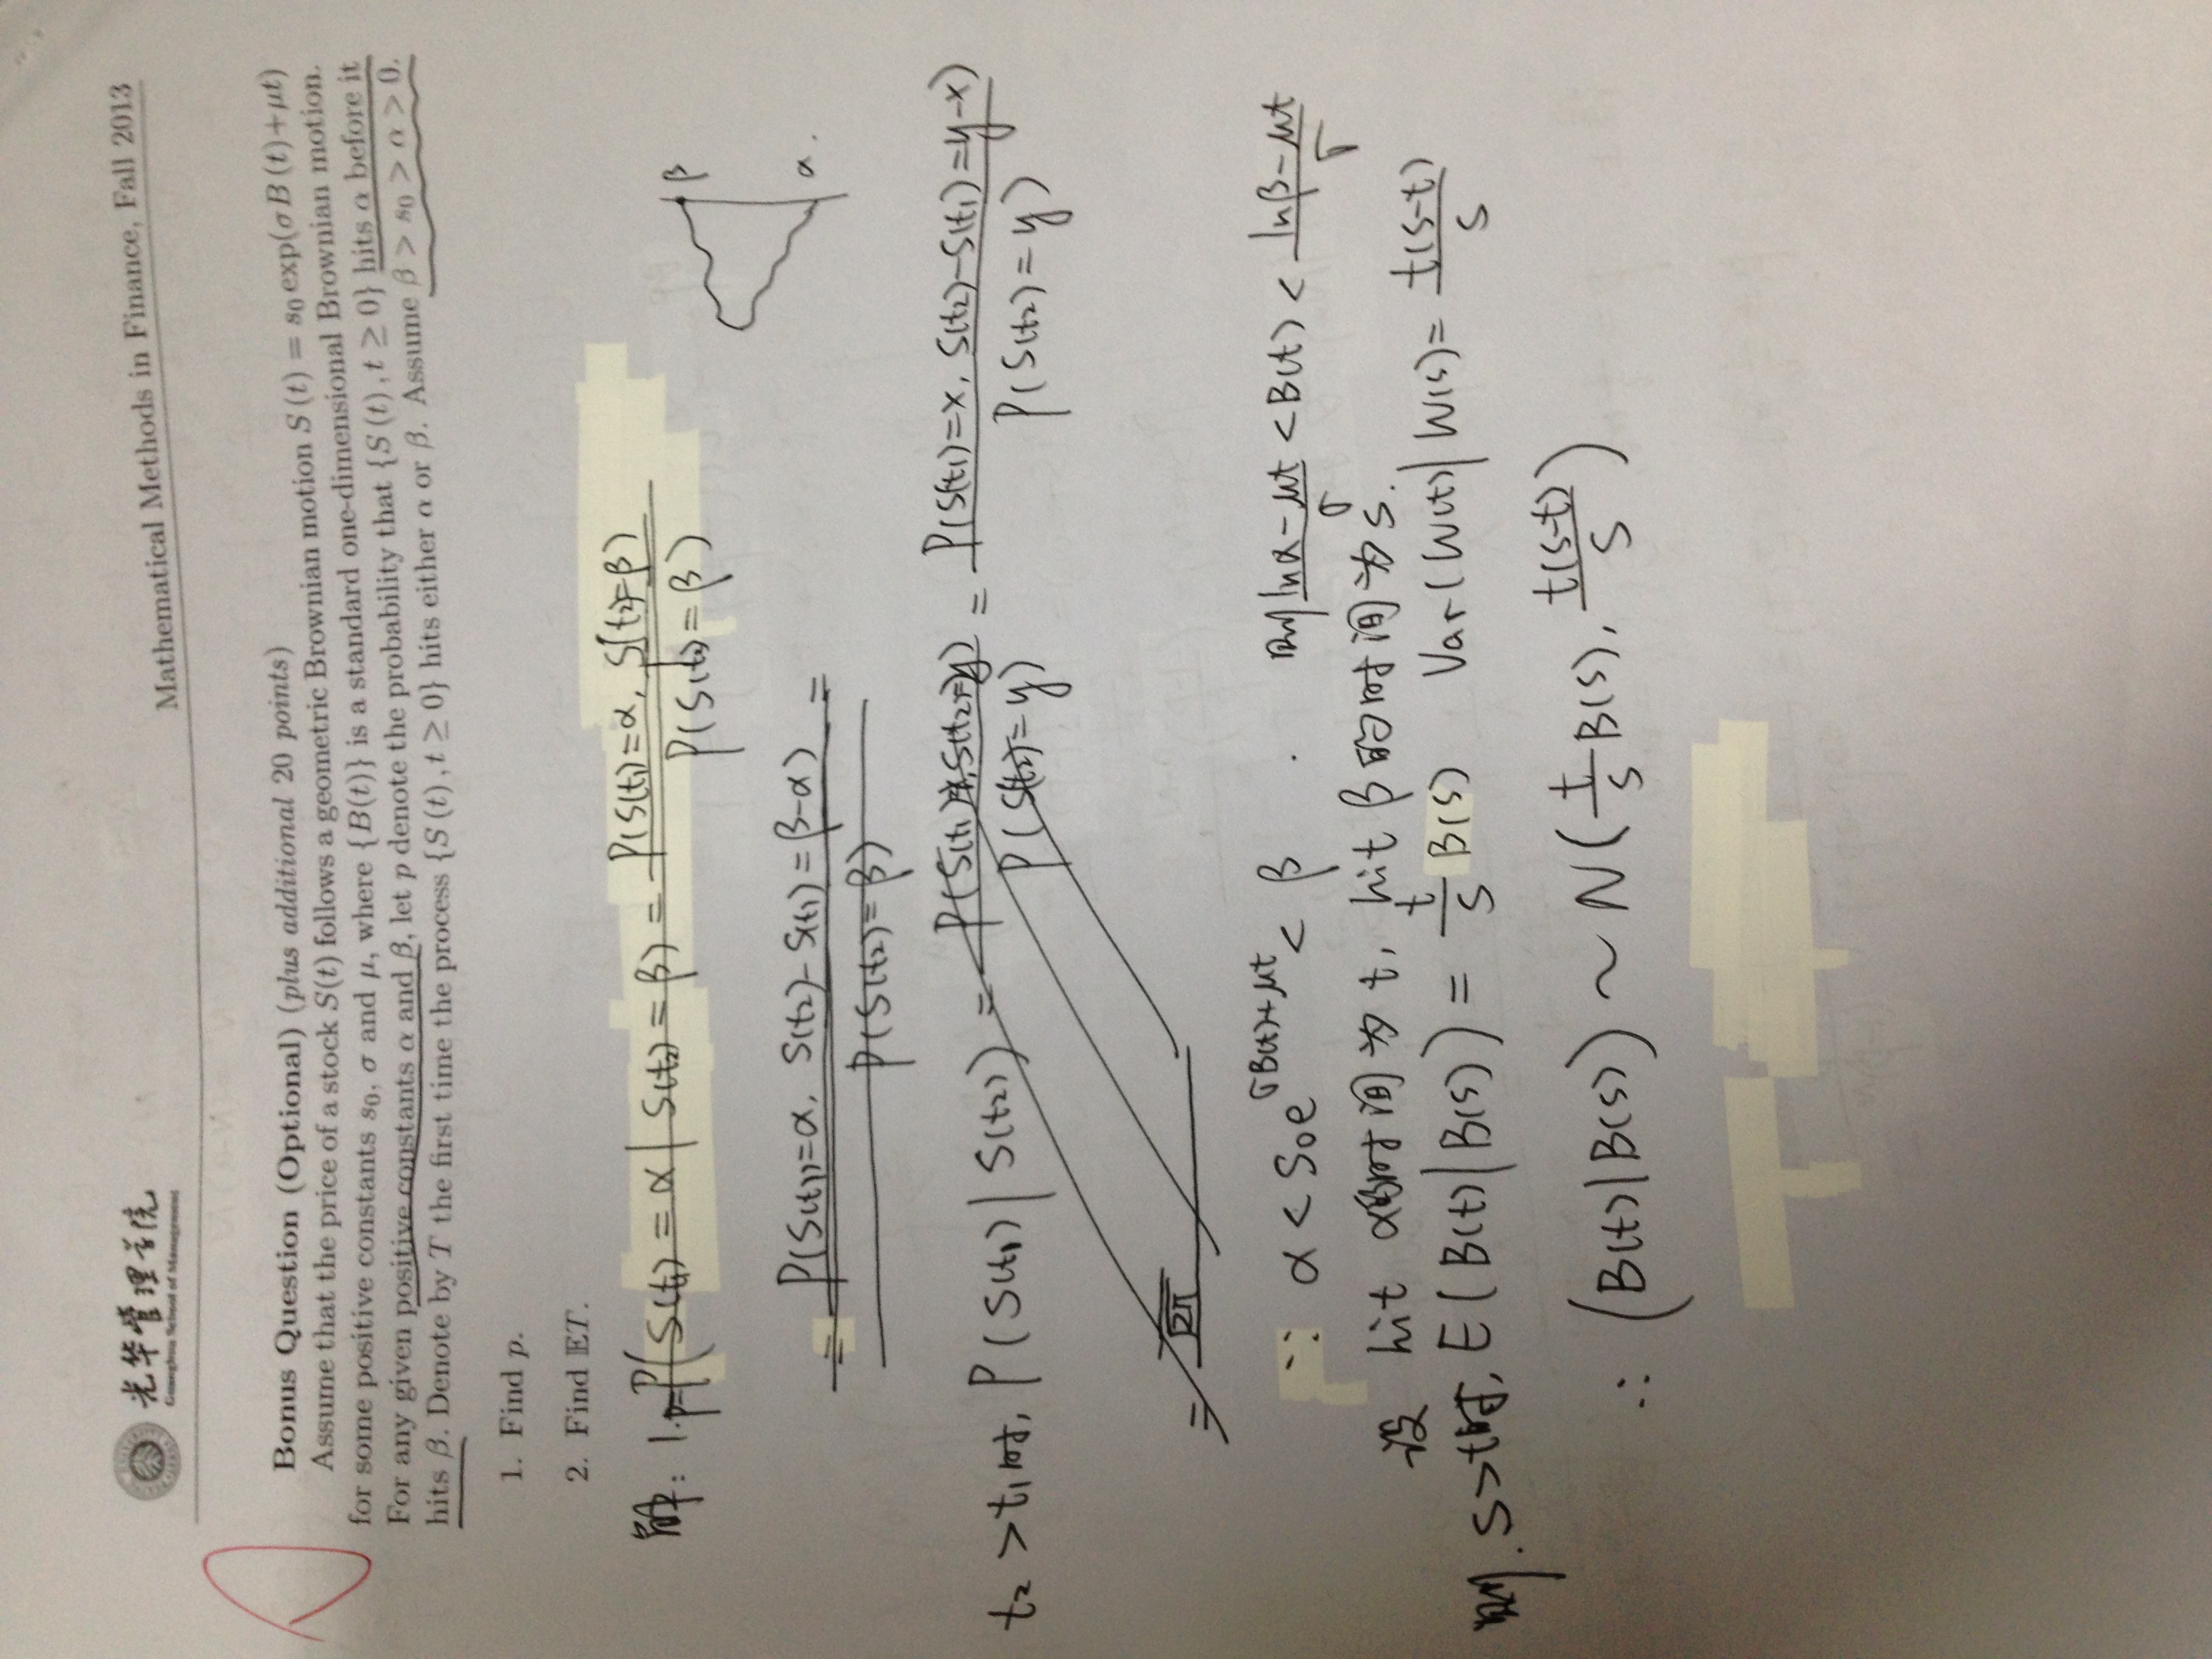 光华管理学院
Guanghua School of Management
Mathematical Methods in Finance, Fall 2013
Bonus Question (Optional) (plus additional 20 points)
Assume that the price of a stock S(t) follows a geometric Brownian motion S(t) = s₀ exp(σB(t)+μt)
for some positive constants s₀, σ and μ, where {B(t)} is a standard one-dimensional Brownian motion.
For any given positive constants α and β, let p denote the probability that {S(t), t ≥ 0} hits α before it
hits β. Denote by T the first time the process {S(t), t ≥ 0} hits either α or β. Assume β > s₀ > α > 0.
1. Find p.
2. Find 𝔼T.
解: 1. p=P(S(t₁) = α | S(t₂) = β) = P(S(t₁)=α, S(t₂)=β) / P(S(t₂)=β)
β
α.
= P(S(t₁)=α, S(t₂)-S(t₁)=β-α) / P(S(t₂)=β) =
t₂>t₁时, P(S(t₁)|S(t₂)) = P(S(t₁)=x, S(t₂)=y) / P(S(t₂)=y) = P(S(t₁)=x, S(t₂)-S(t₁)=y-x) / P(S(t₂)=y)
= √2π
∵ α < S₀e^(σB(t)+μt) < β. 则 (lnα-μt)/σ < B(t) < (lnβ-μt)/σ
设 hit α的时间为 t, hit β的时间为 s.
则. s>t时, E(B(t)|B(s)) = t/s B(s) Var(W(t)|W(s)) = t(s-t)/s
∴ (B(t)|B(s)) ~ N(t/s B(s), t(s-t)/s)